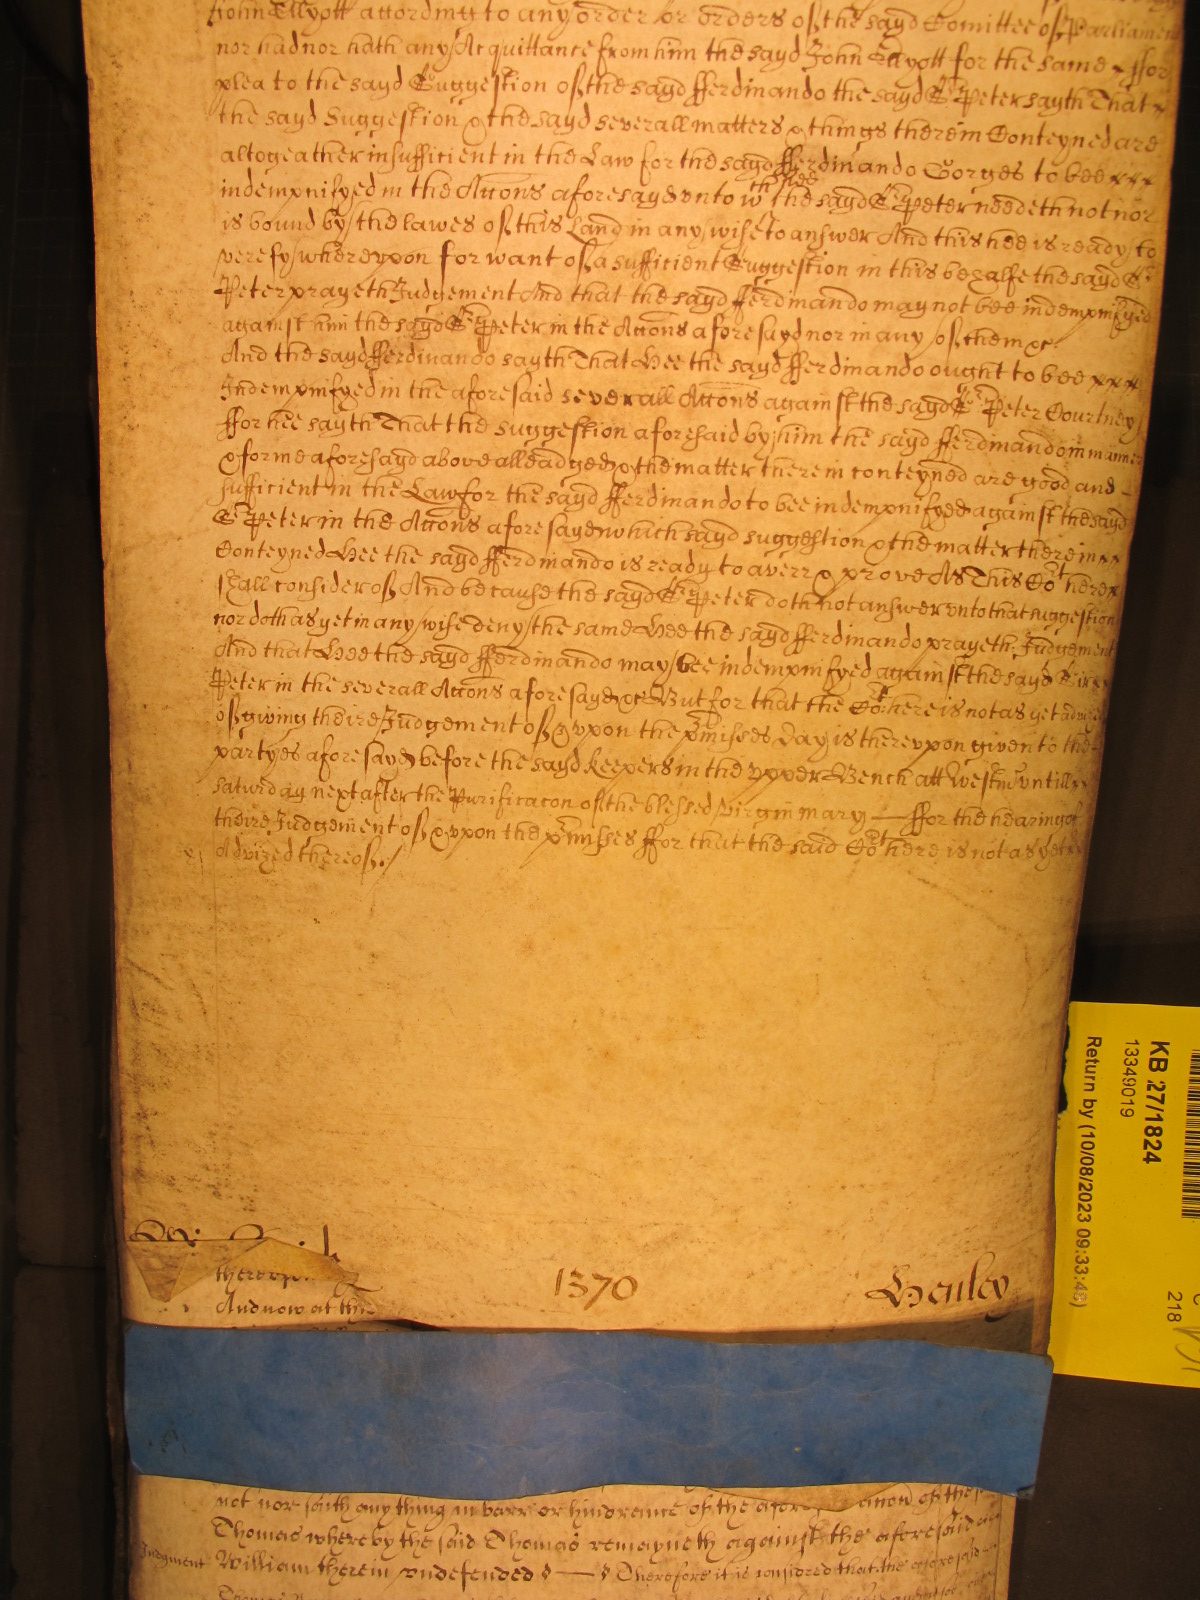 John Ellyott accordinge to any order or orders of the sayd Comittee of Parliament
nor had nor hath any Acquittance from him the sayd John Ellyott for the same ffor
plea to the sayd Suggestion of the sayd fferdinando the sayd Sr Peter sayth That
the sayd Suggestion & the sayd severall matters & things therein Conteyned are
altogeather insufficient in the Law for the sayd fferdinando Gorges to bee
indempnifyed in the Accons aforesayd unto wch the sayd Sr Peter needeth not nor
is bound by the lawes of this Land in any wise to answer And this hee is ready to
verefy whereupon for want of a sufficient Suggestion in this behalfe the sayd Sr
Peter prayeth Judgement And that the sayd fferdinando may not bee indempnifyed
against him the sayd Sr Peter in the Accons aforesayd nor in any of them &c
And the sayd fferdinando sayth That Hee the sayd fferdinando ought to bee
Indempnifyed in the aforesaid severall Accons against the sayd Sr Peter Courtney
ffor hee sayth That the suggestion aforesaid by him the sayd fferdinando in manner
& forme aforesayd above alleadged & the matter therein conteyned are good and
sufficient in the Law for the sayd fferdinando to bee indempnifyed against the sayd
Sr Peter in the Accons aforesayd which sayd suggestion & the matter therein
Conteyned Hee the sayd fferdinando is ready to averr & prove As This Cot here
shall consider of And because the sayd Sr Peter doth not answer unto that suggestion
nor doth as yet in any wise deny the same Hee the sayd fferdinando prayeth Judgement
And that Hee the sayd fferdinando may bee indempnifyed against the sayd Sir
Peter in the severall Accons aforesayd &c But for that the Cot here is not as yet advized
of giving theire Judgement of & upon the pmisses Day is thereupon given to the
partyes aforesayd before the sayd keepers in the upper Bench att Westmr untill
saturday next after the Purificacon of the blessed virgin mary — ffor the hearing of
theire Judgement of & upon the pmisses ffor that the said Cot here is not as yet
Advized thereof./
thereupon
And now at this
1370
Henley
KB 27/1824
13349019
Return by (10/08/2023 09:33:48)
218
not nor saith any thing in barr or hindrance of the
Thomas whereby the said Thomas remayneth against the aforesaid
Judgment William therein undefended — Therefore it is considred that the aforesaid